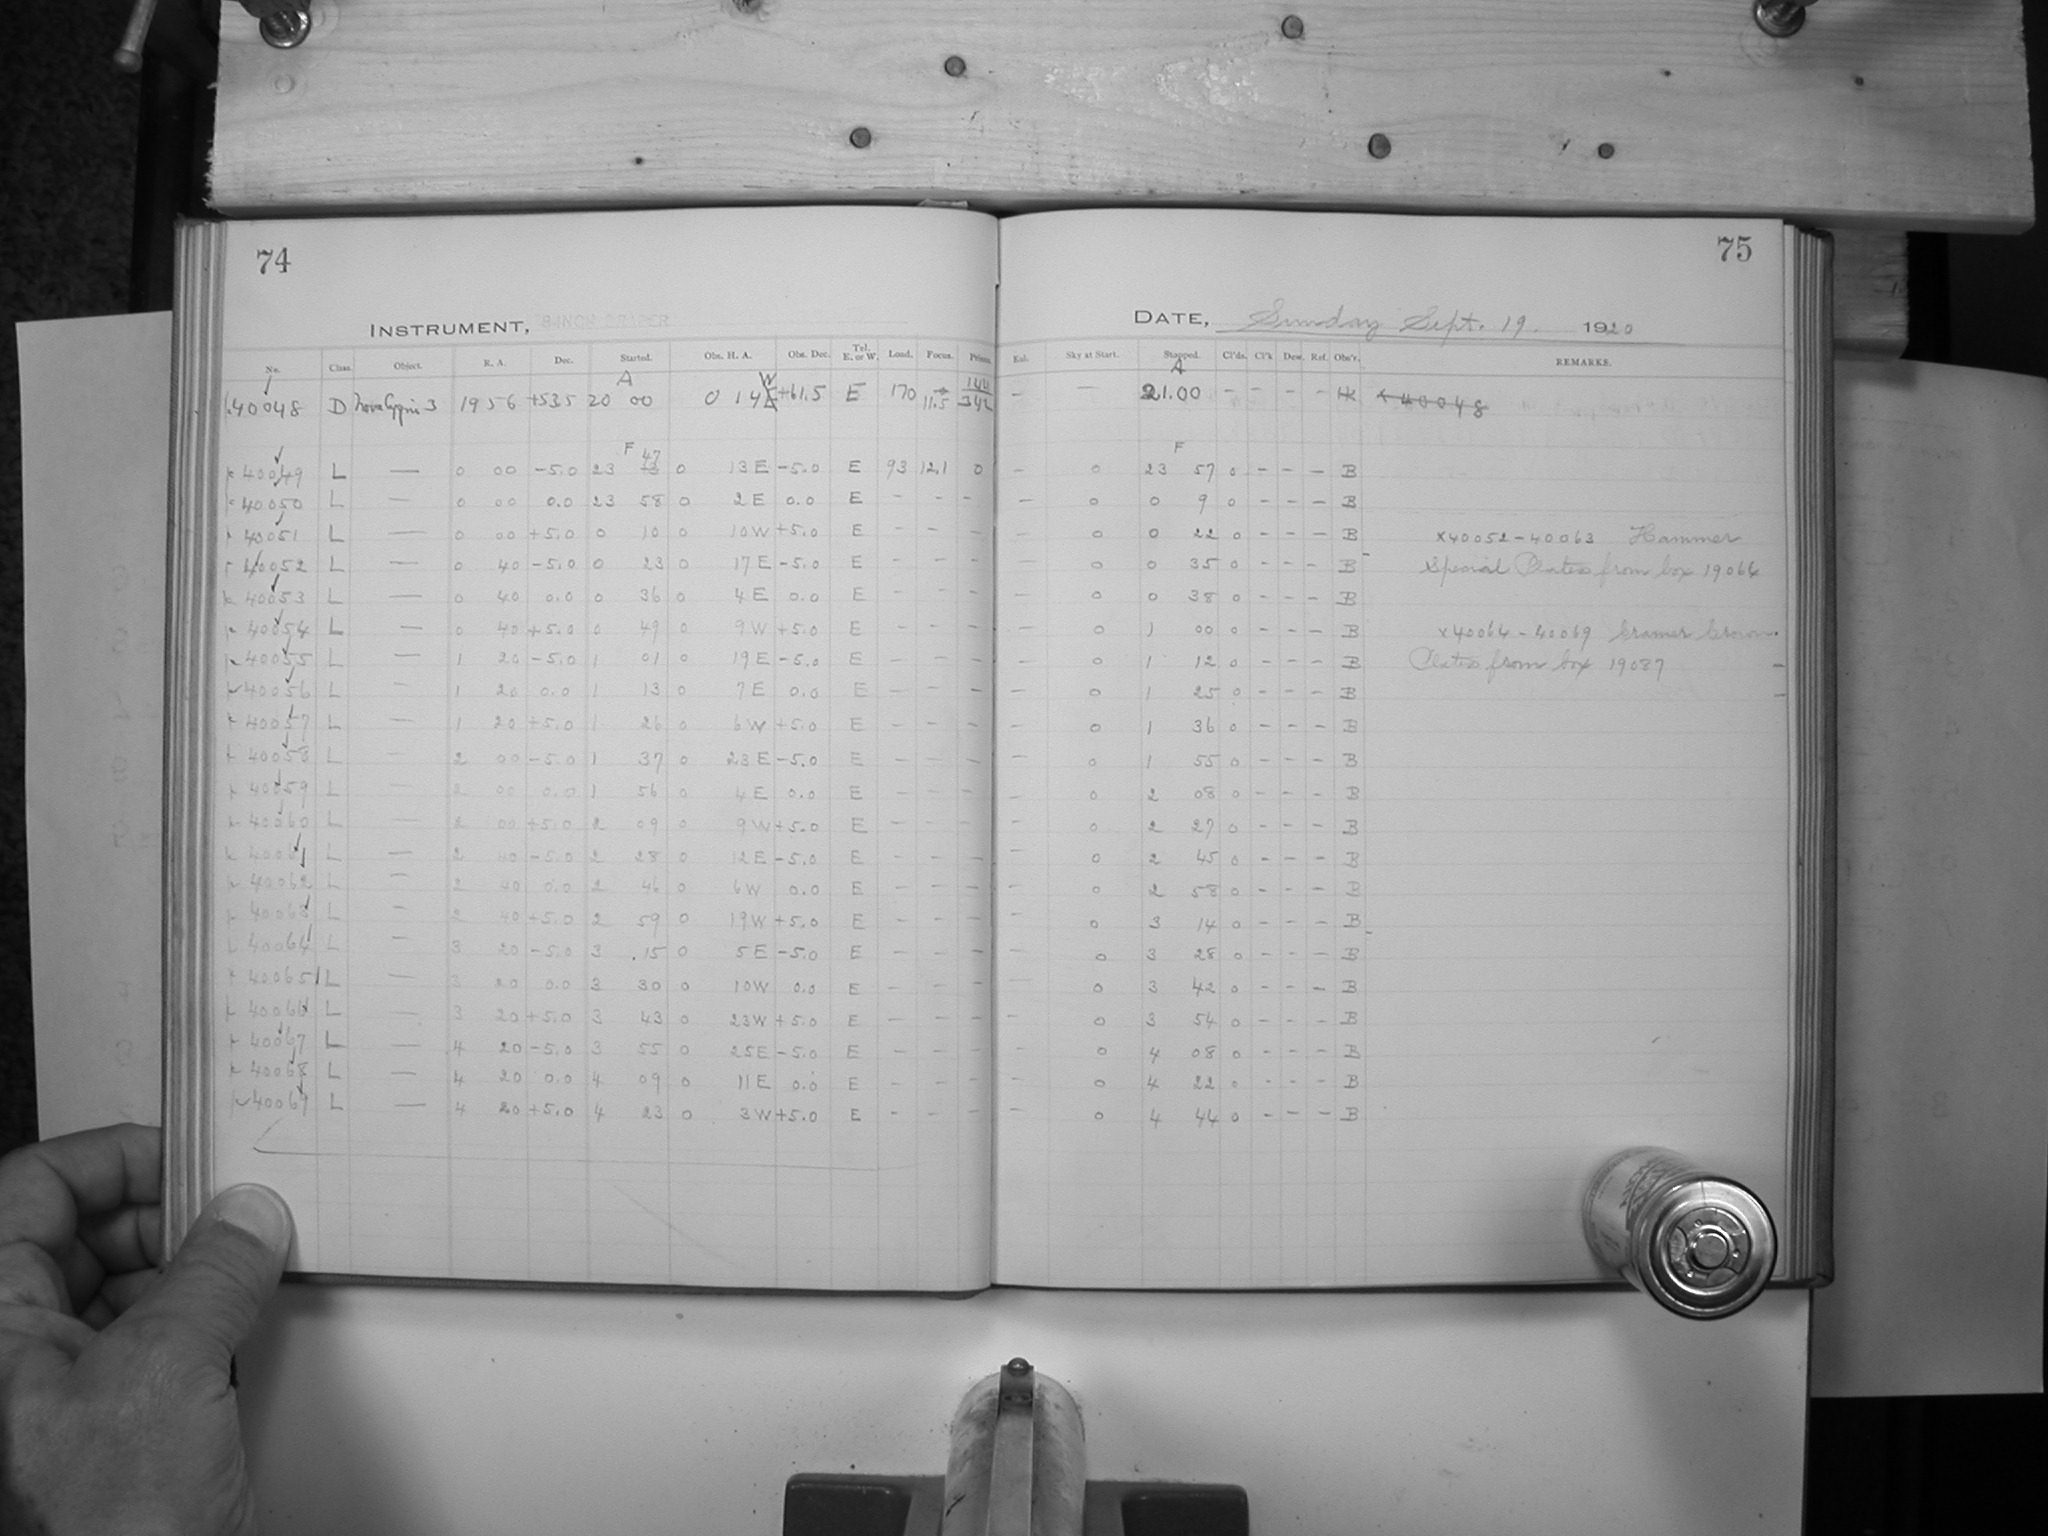 74
INSTRUMENT,
No. Class. Object. R. A. Dec. Started. Obs. H. A. Obs. Dec. Tel. E. or W. Load. Focus.
A
40048 D Nova Cygni 3 19 56 +53.5 20 00 0 14 W +61.5 E 170 11.5 144 342
F
x 40049 L — 0 00 -5.0 23 47 0 13 E -5.0 E 93 12.1 0
40050 L — 0 00 0.0 23 58 0 2 E 0.0 E - - -
40051 L — 0 00 +5.0 0 10 0 10 W +5.0 E - - -
40052 L — 0 40 -5.0 0 23 0 17 E -5.0 E - - -
40053 L — 0 40 0.0 0 36 0 4 E 0.0 E - - -
40054 L — 0 40 +5.0 0 49 0 9 W +5.0 E - - -
40055 L — 1 20 -5.0 1 01 0 19 E -5.0 E - - -
40056 L — 1 20 0.0 1 13 0 7 E 0.0 E - - -
40057 L — 1 20 +5.0 1 26 0 6 W +5.0 E - - -
40058 L — 2 00 -5.0 1 37 0 23 E -5.0 E - - -
40059 L — 2 00 0.0 1 56 0 4 E 0.0 E - - -
40060 L — 2 00 +5.0 2 09 0 9 W +5.0 E - - -
40061 L — 2 40 -5.0 2 28 0 12 E -5.0 E - - -
40062 L — 2 40 0.0 2 46 0 6 W 0.0 E - - -
40063 L — 2 40 +5.0 2 59 0 19 W +5.0 E - - -
40064 L — 3 20 -5.0 3 15 0 5 E -5.0 E - - -
40065 L — 3 20 0.0 3 30 0 10 W 0.0 E - - -
40066 L — 3 20 +5.0 3 43 0 23 W +5.0 E - - -
40067 L — 4 20 -5.0 3 55 0 25 E -5.0 E - - -
40068 L — 4 20 0.0 4 09 0 11 E 0.0 E - - -
40069 L — 4 20 +5.0 4 23 0 3 W +5.0 E - - -
75
DATE, Sunday Sept. 19. 1920
Sky at Start. Stopped. Cl'ds. Cl'k Dew. Ref. Obs'r. REMARKS.
A
- — 21.00 - - - - x 40048
F
- 0 23 57 0 - - - B
- 0 0 9 0 - - - B
- 0 0 22 0 - - - B x40052-40063 Hammer
- 0 0 35 0 - - - B Special Plates from box 19064
- 0 0 38 0 - - - B
- 0 1 00 0 - - - B x40064-40069 Cramer Crown
- 0 1 12 0 - - - B Plates from box 19087
- 0 1 25 0 - - - B
- 0 1 36 0 - - - B
- 0 1 55 0 - - - B
- 0 2 08 0 - - - B
- 0 2 27 0 - - - B
- 0 2 45 0 - - - B
- 0 2 58 0 - - - B
- 0 3 14 0 - - - B
- 0 3 28 0 - - - B
- 0 3 42 0 - - - B
- 0 3 54 0 - - - B
- 0 4 08 0 - - - B
- 0 4 22 0 - - - B
- 0 4 44 0 - - - B